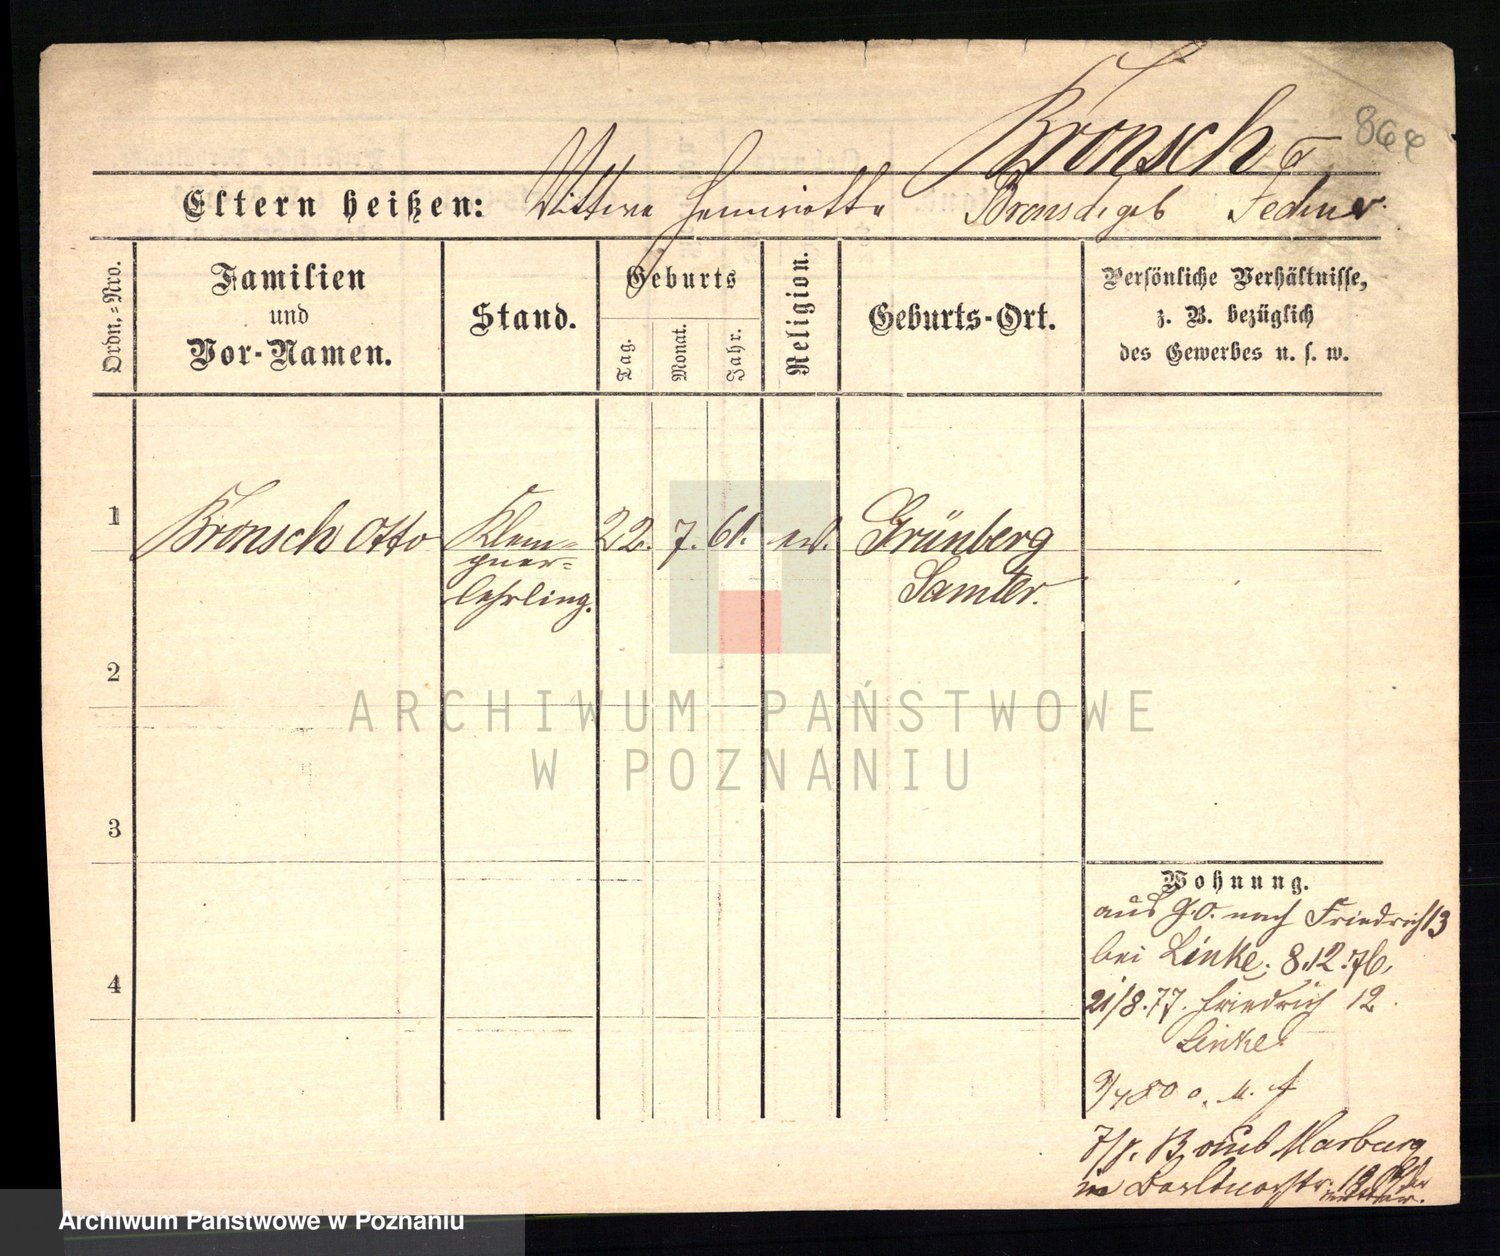 Bronsch
868
Eltern heißen: Wittwe Henriette Bronsch geb Fechner
Ordn.-Nro.
Familien
und
Vor-Namen.
Stand.
Geburts
Tag.
Monat.
Jahr.
Religion.
Geburts-Ort.
Persönliche Verhältnisse,
z. B. bezüglich
des Gewerbes u. s. w.
1 Bronsch Otto Klem= 22. 7. 61. ev. Grünberg
pner=
lehrling.
Samter.
2
3
4
Wohnung.
aus G.O. nach Friedrich 13
bei Linke. 8.12.76.
21/8.77. Friedrich 12.
Linke.
9/4 80 o. M. f
aus Marburg
ARCHIWUM PAŃSTWOWE
W POZNANIU
Archiwum Państwowe w Poznaniu